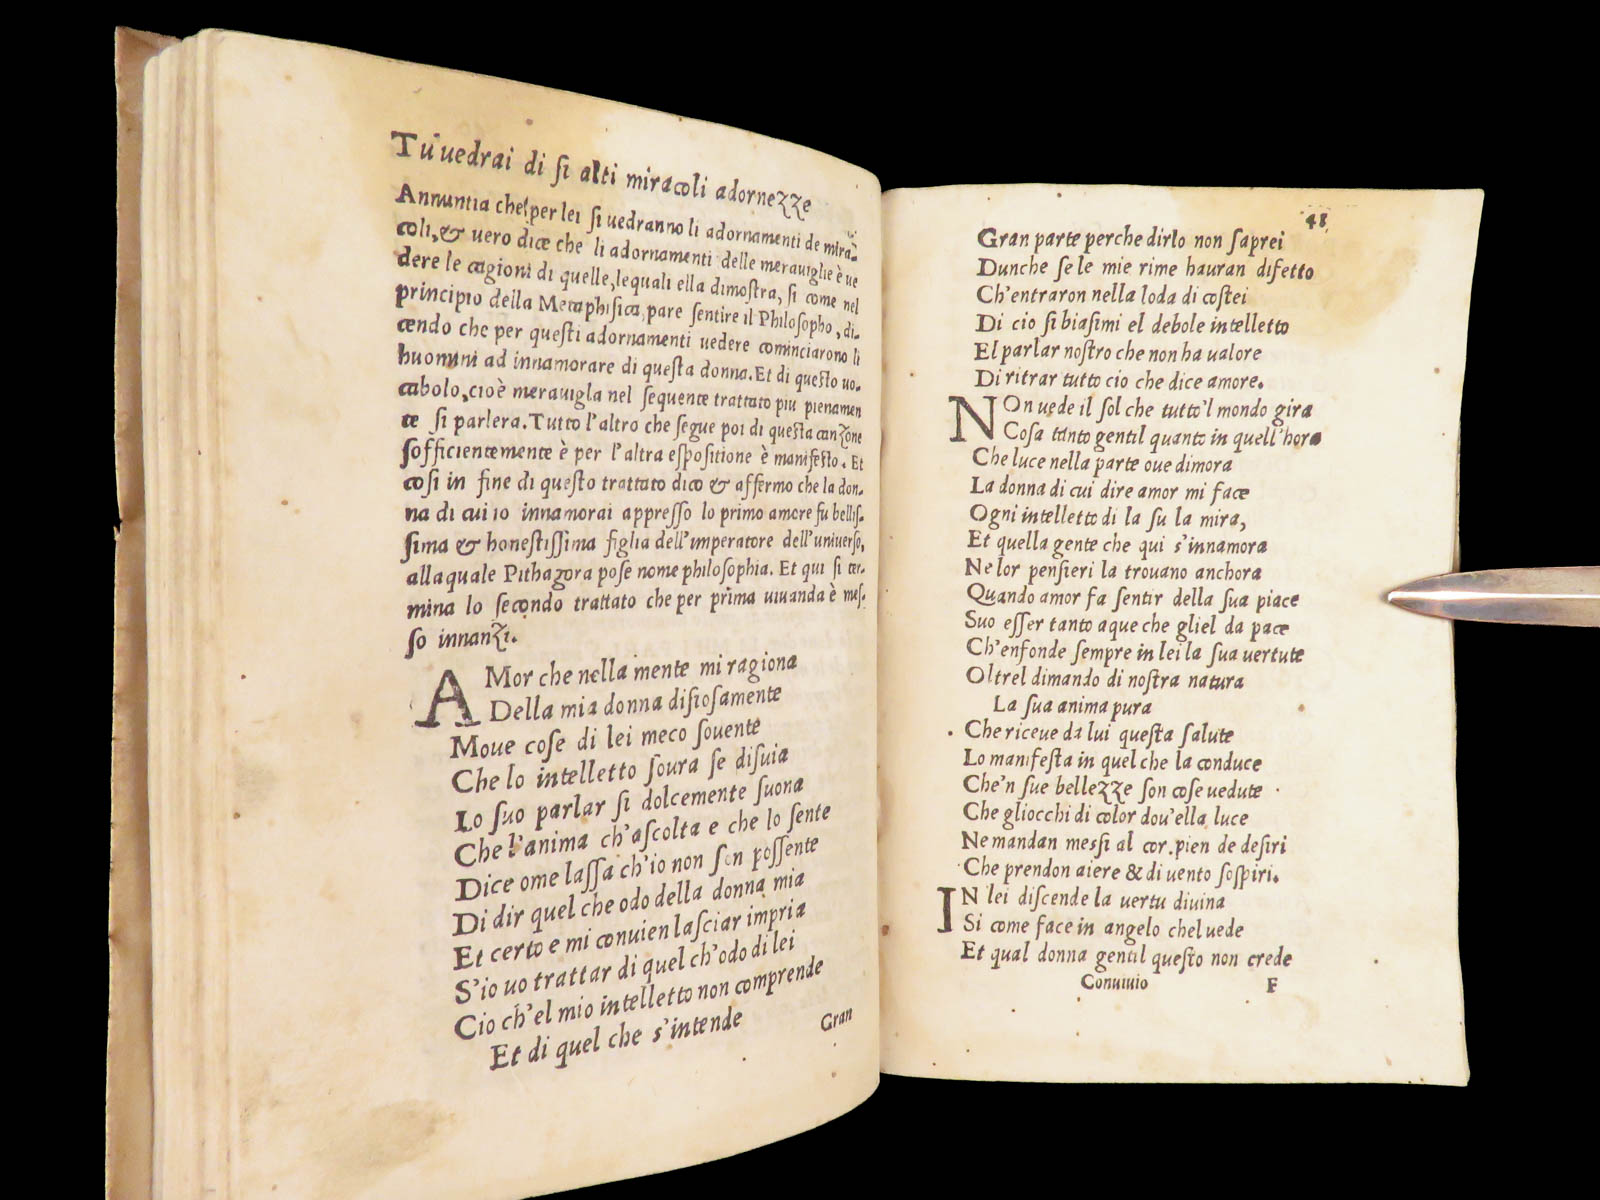 Tu uedrai di ſi alti miracoli adornezze
Annuntia che per lei ſi uedranno li adornamenti de mira-
coli, & uero dice che li adornamenti delle merauiglie è ue
dere le cagioni di quelle, lequali ella dimoſtra, ſi come nel
principio della Metaphiſica, pare ſentire il Philoſopho, di-
cendo che per queſti adornamenti uedere cominciarono li
huomini ad innamorare di queſta donna. Et di queſto uo-
cabolo, cioè merauigla nel ſequente trattato piu pienamen
te ſi parlera. Tutto l'altro che ſegue poi di queſta canzone
ſofficientemente è per l'altra eſpoſitione è manifeſto. Et
coſi in fine di queſto trattato dico & affermo che la don-
na di cui io innamorai appreſſo lo primo amore fu belliſ-
ſima & honeſtiſſima figlia dell'imperatore dell'uniuerſo,
alla quale Pithagora poſe nome philoſophia. Et qui ſi ter-
mina lo ſecondo trattato che per prima uiuanda è meſ-
ſo innanzi.
AMor che nella mente mi ragiona
Della mia donna diſioſamente
Moue coſe di lei meco ſouente
Che lo intelletto ſoura ſe diſuia
Lo ſuo parlar ſi dolcemente ſuona
Che l'anima ch'aſcolta e che lo ſente
Dice ome laſſa ch'io non ſon poſſente
Di dir quel che odo della donna mia
Et certo e mi conuien laſciar impria
S'io uo trattar di quel ch'odo di lei
Cio ch'el mio intelletto non comprende
Et di quel che s'intende
Gran
48
Gran parte perche dirlo non ſaprei
Dunche ſe le mie rime hauran difetto
Ch'entraron nella loda di coſtei
Di cio ſi biaſimi el debole intelletto
El parlar noſtro che non ha ualore
Di ritrar tutto cio che dice amore.
NOn uede il ſol che tutto'l mondo gira
Coſa tanto gentil quanto in quell'hora
Che luce nella parte oue dimora
La donna di cui dire amor mi face
Ogni intelletto di la ſu la mira,
Et quella gente che qui s'innamora
Ne lor penſieri la trouano anchora
Quando amor fa ſentir della ſua piace
Suo eſſer tanto a que che gliel da pace
Ch'enfonde ſempre in lei la ſua uertute
Oltrel dimando di noſtra natura
La ſua anima pura
Che riceue da lui queſta ſalute
Lo manifeſta in quel che la conduce
Che'n ſue bellezze ſon coſe uedute
Che gliocchi di color dou'ella luce
Ne mandan meſſi al cor.pien de deſiri
Che prendon aiere & di uento ſoſpiri.
IN lei diſcende la uertu diuina
Si come face in angelo chel uede
Et qual donna gentil queſto non crede
Conuiuio F